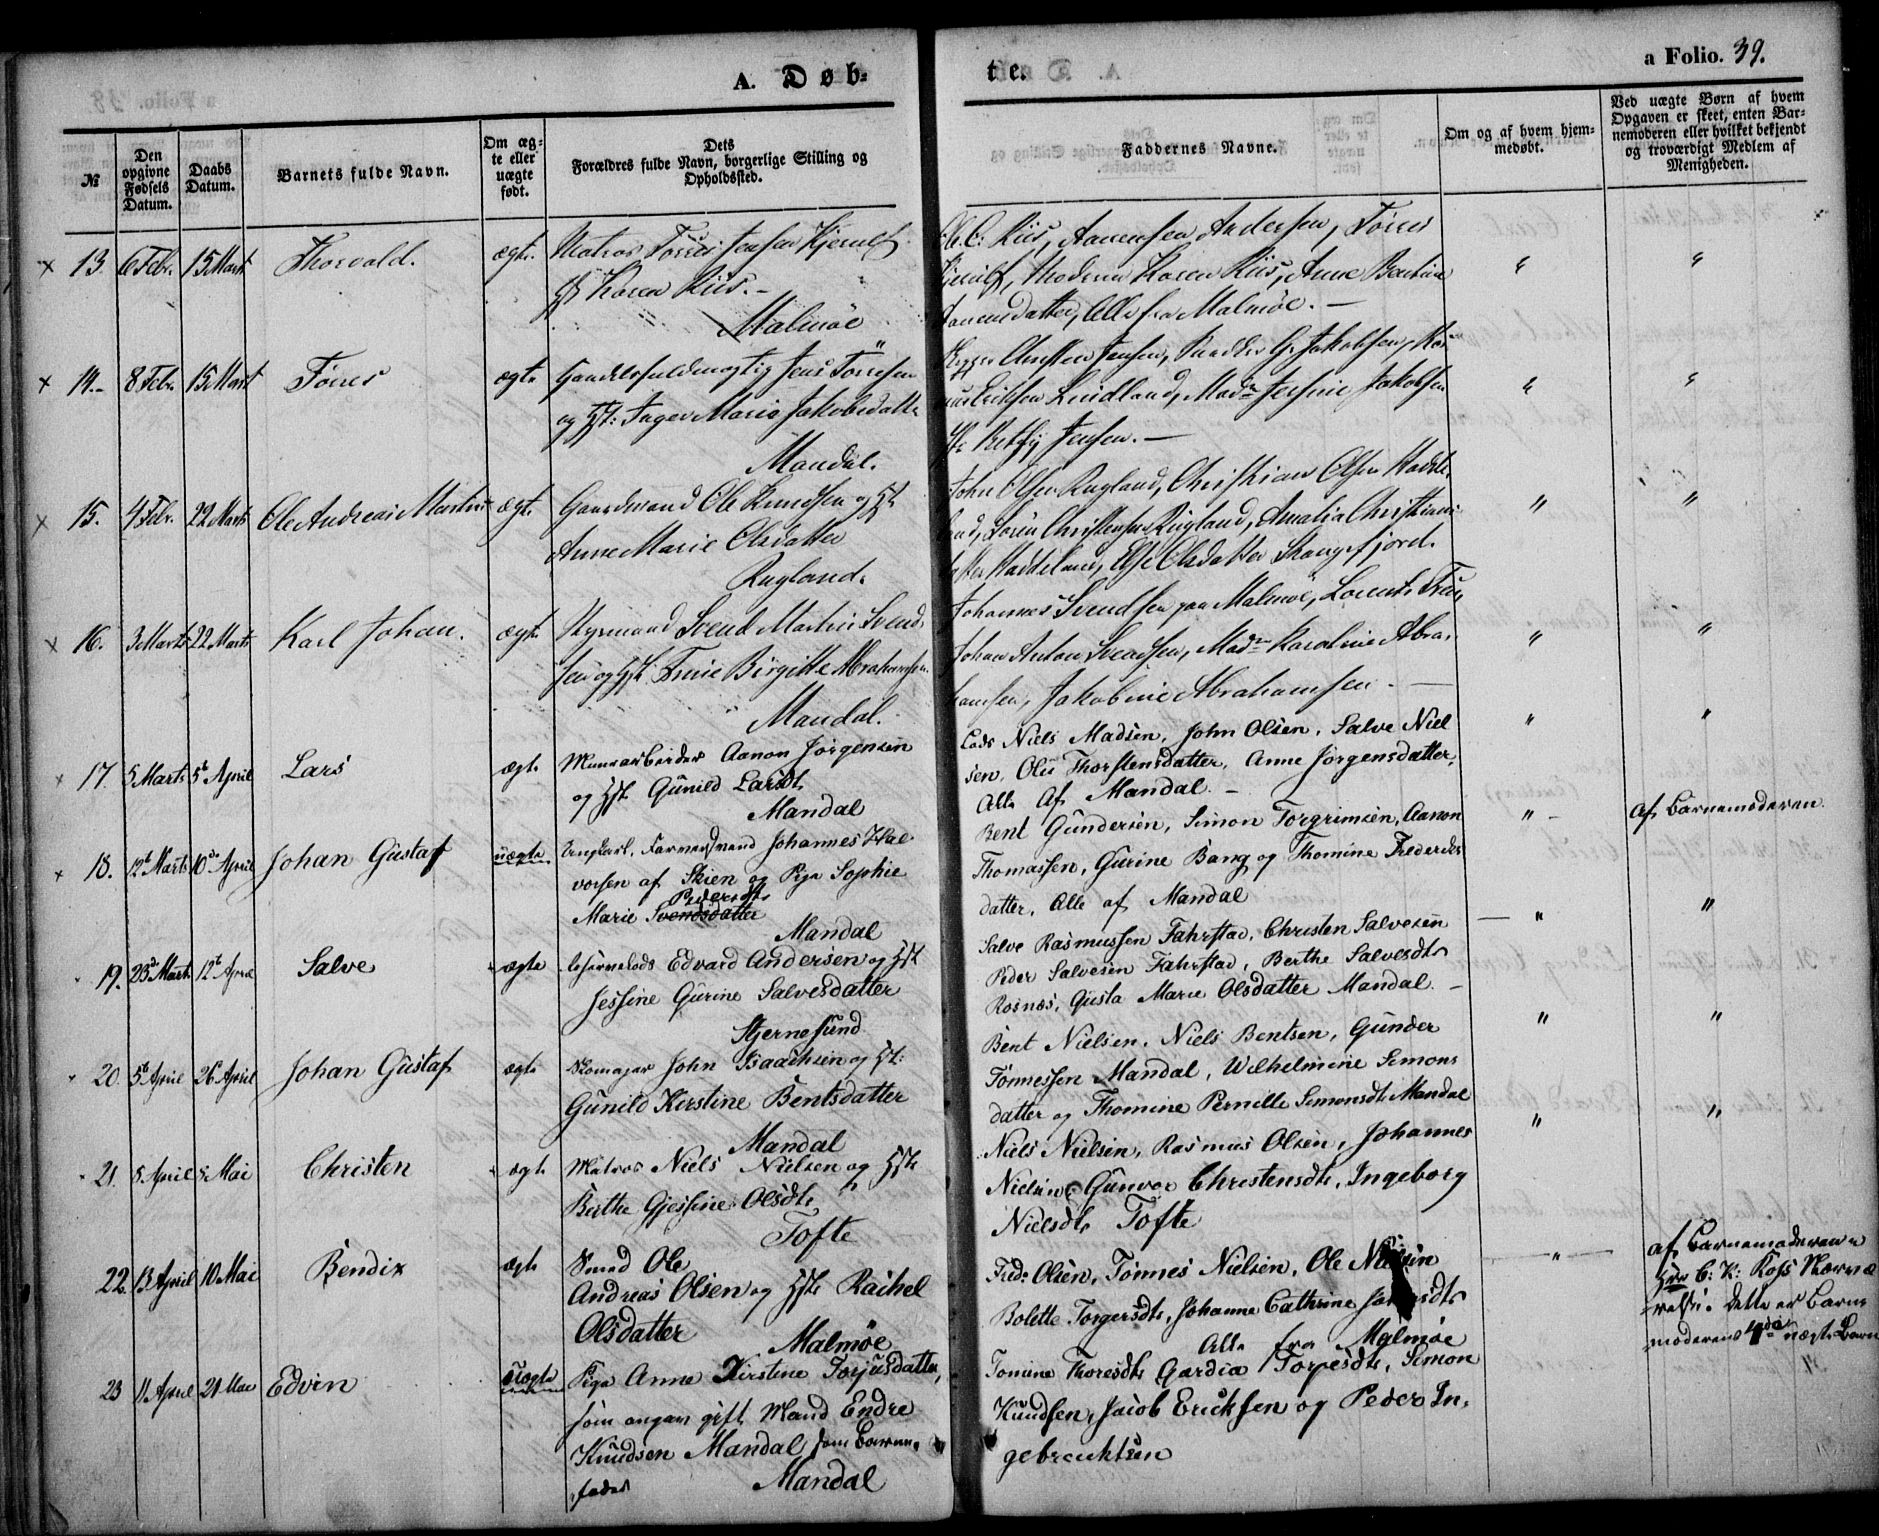 A. Døb-
te.
a Folio. 39.
№
Den opgivne Fødsels Datum.
Daabs Datum.
Barnets fulde Navn.
Om ægte eller uægte født.
Dets Forældres fulde Navn, borgerlige Stilling og Opholdssted.
Faddernes Navne.
Om og af hvem hjemmedøbt.
Ved uægte Børn af hvem Opgaven er skeet, enten Barnemoderen eller hvilket bekjendt og troværdigt Medlem af Menigheden.
13. 6 Febr. 15 Marts Thorvald. ægte. Matros Tørres Jensen Kjerulf
og Karen Riis. -
Malmøe
Riis, Anensen Andersen, Tørres
Kjerulf, Moderen Karen Riis, Anne Bentine
Alle fra Malmøe. -
14. 8 Febr. 15 Marts Tørres ægte Handelsfuldmægtig Jens Tørresen
og Hst: Inger Marie Jakobsdatter
Mandal.
Christen Jensen, G. Jakobsen,
Eriksen Lindland, Mad. Jensine Jakobsen
Betsy Jensen. -
15. 4 Febr. 22 Marts Ole Andreas Martin ægte. Gaardmand Ole Knudsen og Hst
Anne Marie Olsdatter
Rugland.
John Olsen Rugland, Christian Olsen Haddeland,
Søren Christensen Rugland, Amalia Christians-
datter Haddeland, Else Olsdatter Skougsfjord.
16. 3 Marts 22 Marts Karl Johan. ægte Styrmand Svend Martin Svend-
sen og Hst. Trine Birgitte Abrahamsen
Mandal.
Johannes Svendsen paa Malmøe, Lorents
Johan Anton Svendsen, Mad. Karoline Abra-
hamsen, Jakobine Abrahamsen -
17. 5 Marts 5te April Lars ægte Muurarbeider Aanon Jørgensen
og Hst Gunild Larsdt
Mandal
Lods Niels Madsen, John Olsen, Salve Niel
sen, Olie Thorstensdatter, Anne Jørgensdatter,
Alle Af Mandal. -
18. 12te Marts 10de April Johan Gustaf uægte Ungkarl, Johannes Hal
vorsen af Skien og Pige Sophie
Pedersdt
Marie Svendsdatter
Mandal
Bent Gundersen, Simon Torgrimsen, Aanon
Thomassen, Gurine Bang og Thomine Frederiks
datter, Alle af Mandal
af Barnemoderen
19. 23de Marts 12te April Salve ægte Edvard Andersen og Hst
Jessine Gurine Salvesdatter
Stjernesund
Salve Rasmussen Fahrstad, Christen Salvesen
Peder Salvesen Fahrstad, Berthe Salvesdtr
Rosnæs, Gusta Marie Olsdatter Mandal. -
20. 5te April 26 April Johan Gustaf ægte Skomager John Isaachsen og Hst:
Gunild Kirstine Bentsdatter
Mandal
Bent Nielsen, Niels Bentsen, Gunder
Tønnessen Mandal, Wilhelmine Simons
datter og Thomine Pernille Simonsdt Mandal
21. 5 April 5 Mai Christen ægte Matros Niels Nielsen og Hst
Berthe Gjessine Olsdt
Tofte
Niels Nielsen, Rasmus Olsen, Johannes
Nielsen, Gunvor Christensdt, Ingeborg
Nielsdt Tofte
22. 13 April 10 Mai Bendix ægte Smed Ole
Andreas Olsen og Hst Rachel
Olsdatter
Malmøe
Fredr Olsen, Tønnes Nielsen, Ole Nielsen
Bolette Torgersdt, Johanne Cathrine
Alle fra Malmøe
af Barnemoderen
C: K: Koss Nærvæ
relse. Dette er Barne
moderens 4de uægte Barn
23 11 April 21 Mai Edvin uægte Pige Anne Kirstine Torjusdatter,
som angav gift Mand Endre
Knudsen Mandal som Barne-
fader
Mandal
Tomine Thoresdt, Gardia Torjesdt, Simon
Knudsen, Jacob Ericksen og Peder In-
gebrecktsen